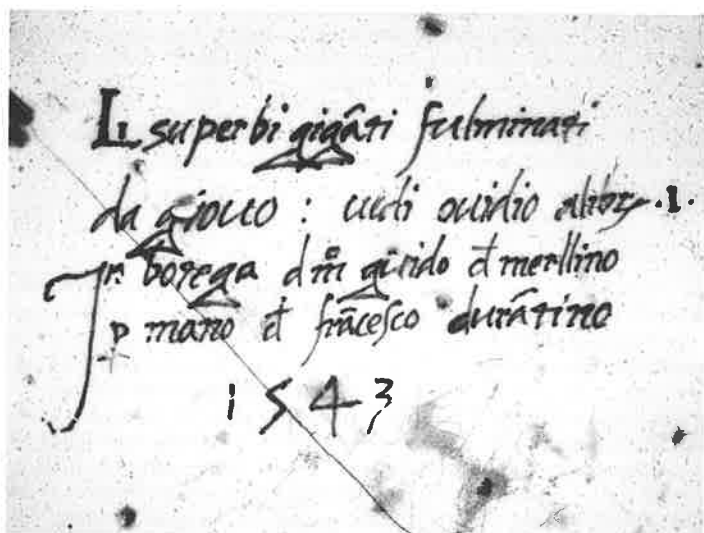 Li superbi gigāti fulminati
da giouo : uedi ouidio alibr .1.
In botega d m° guido đ merllino
p mano đ frācesco durātino
1543